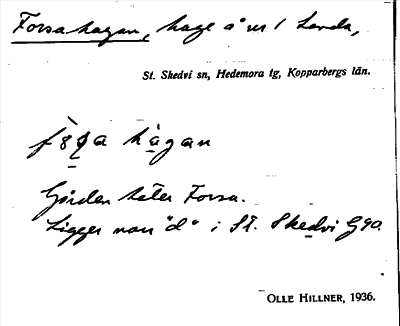 Forsahagan, hage å nr 1 Landa,
St. Skedvi sn, Hedemora tg, Kopparbergs län.
hagan
Gården heter Forsa.
Ligger nan "d" i St. Skedvi G90.
OLLE HILLNER, 1936.